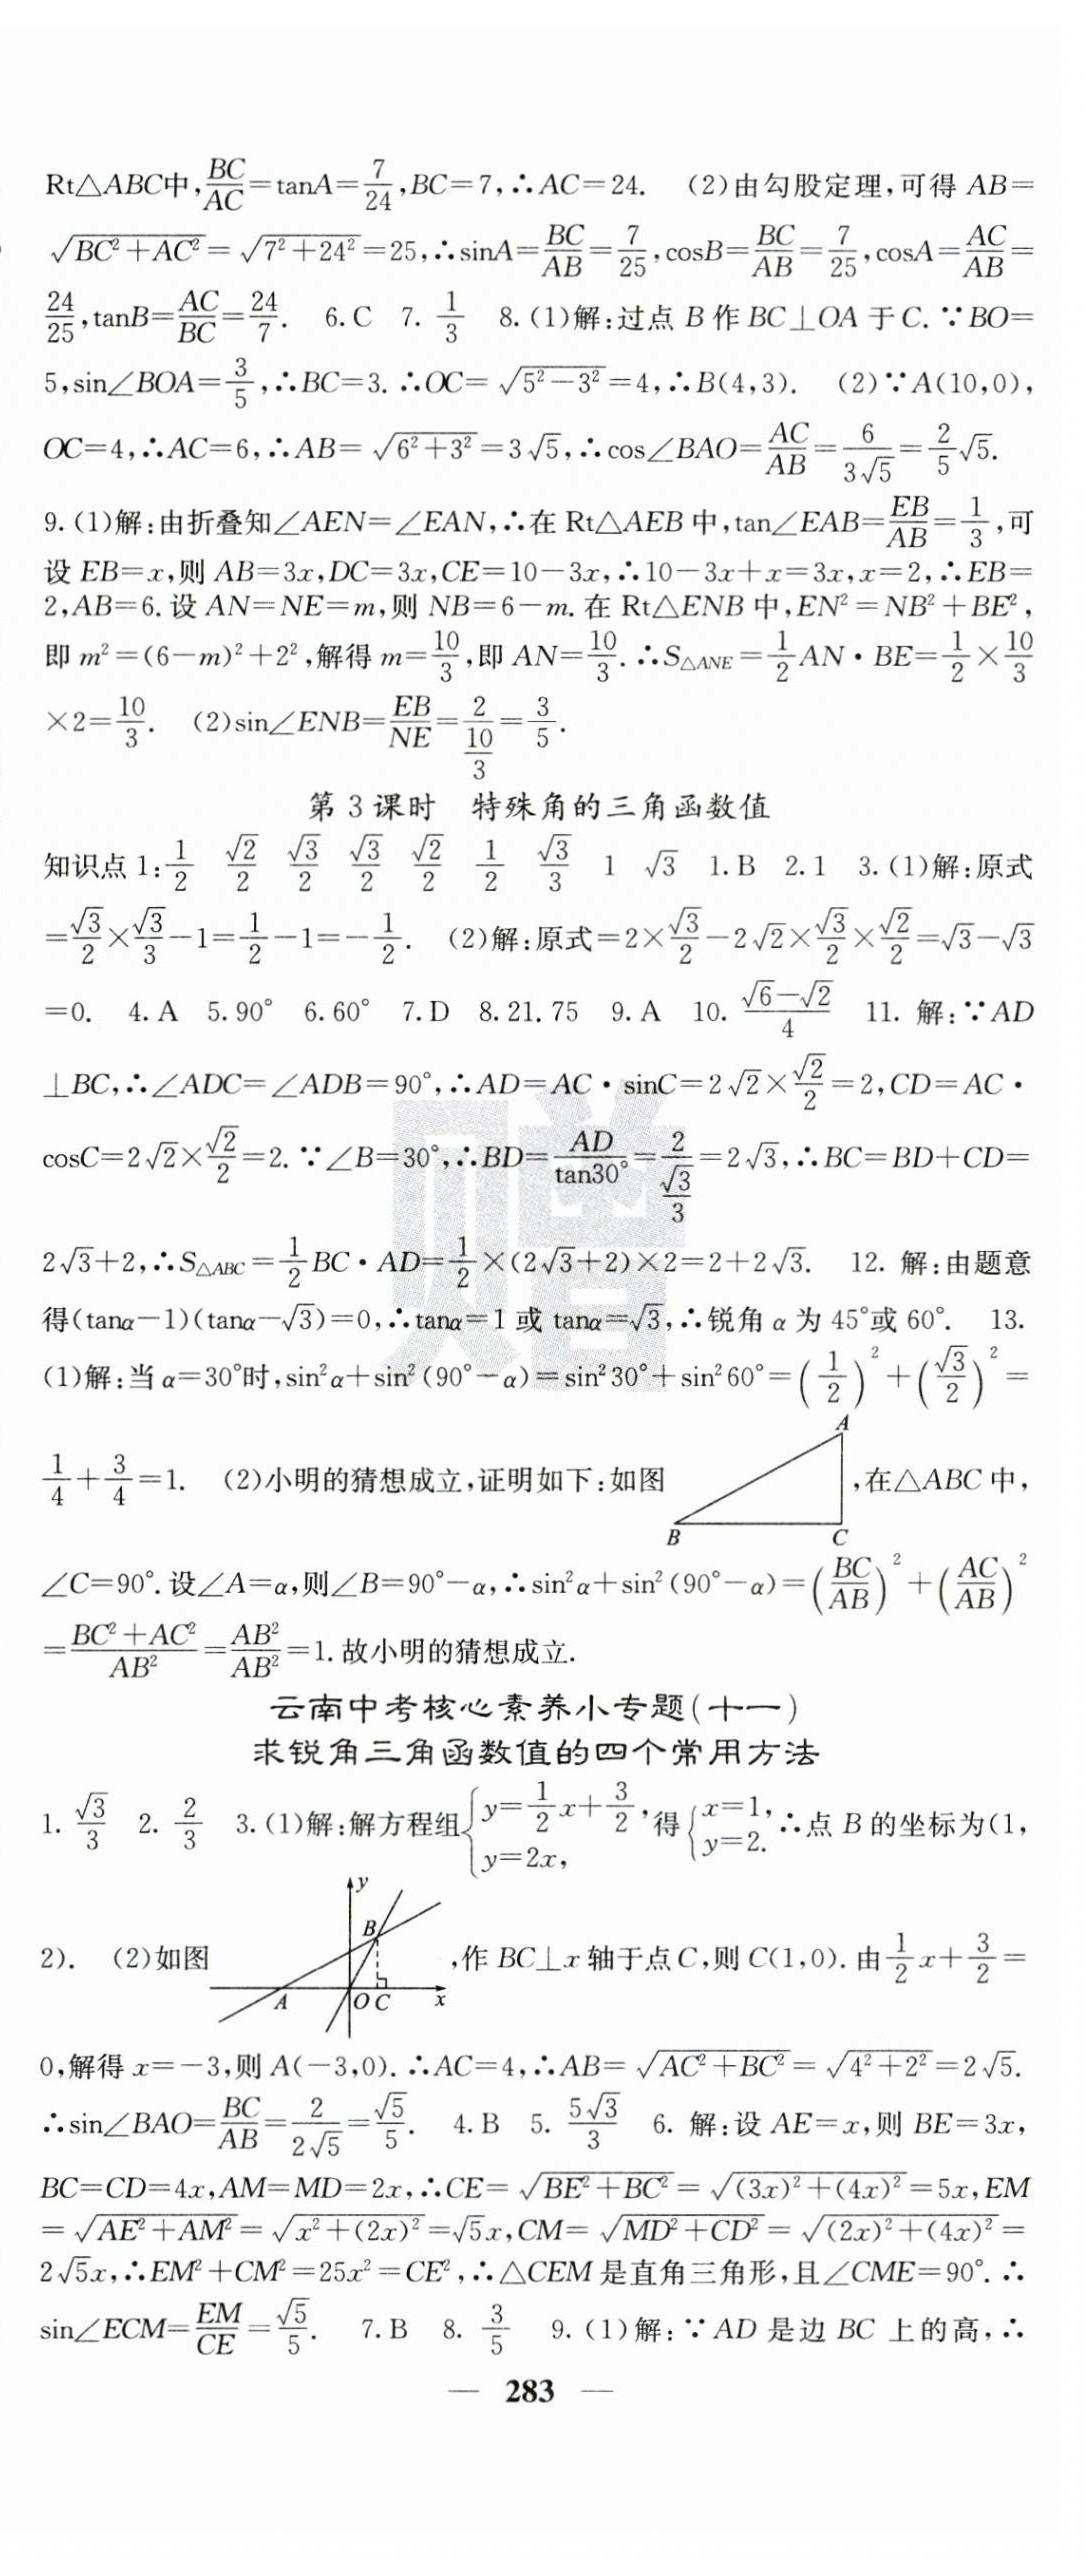 Rt△ABC中,BC/AC=tanA=7/24,BC=7,∴AC=24. (2)由勾股定理,可得 AB=
√(BC²+AC²)=√(7²+24²)=25,∴sinA=BC/AB=7/25,cosB=BC/AB=7/25,cosA=AC/AB=
24/25,tanB=AC/BC=24/7. 6.C 7. 1/3 8.(1)解:过点 B 作 BC⊥OA 于 C.∵BO=
5,sin∠BOA=3/5,∴BC=3.∴OC=√(5²-3²)=4,∴B(4,3). (2)∵A(10,0),
OC=4,∴AC=6,∴AB=√(6²+3²)=3√5,∴cos∠BAO=AC/AB=6/(3√5)=2/5√5.
9.(1)解:由折叠知∠AEN=∠EAN,∴在 Rt△AEB 中,tan∠EAB=EB/AB=1/3,可
设 EB=x,则 AB=3x,DC=3x,CE=10-3x,∴10-3x+x=3x,x=2,∴EB=
2,AB=6.设 AN=NE=m,则 NB=6-m.在 Rt△ENB 中,EN²=NB²+BE²,
即 m²=(6-m)²+2²,解得 m=10/3,即 AN=10/3.∴S△ANE=1/2AN·BE=1/2×10/3
×2=10/3. (2)sin∠ENB=EB/NE=2/(10/3)=3/5.
第 3 课时 特殊角的三角函数值
知识点 1:1/2 √2/2 √3/2 √3/2 √2/2 1/2 √3/3 1 √3 1.B 2.1 3.(1)解:原式
=√3/2×√3/3-1=1/2-1=-1/2. (2)解:原式=2×√3/2-2√2×√3/2×√2/2=√3-√3
=0. 4.A 5.90° 6.60° 7.D 8.21.75 9.A 10. (√6-√2)/4 11. 解:∵AD
⊥BC,∴∠ADC=∠ADB=90°,∴AD=AC·sinC=2√2×√2/2=2,CD=AC·
cosC=2√2×√2/2=2.∵∠B=30°,∴BD=AD/tan30°=2/(√3/3)=2√3,∴BC=BD+CD=
2√3+2,∴S△ABC=1/2BC·AD=1/2×(2√3+2)×2=2+2√3. 12. 解:由题意
得(tanα-1)(tanα-√3)=0,∴tanα=1 或 tanα=√3,∴锐角 α 为 45°或 60°. 13.
(1)解:当 α=30°时,sin²α+sin²(90°-α)=sin²30°+sin²60°=(1/2)²+(√3/2)²=
1/4+3/4=1. (2)小明的猜想成立,证明如下:如图 A B C ,在△ABC 中,
∠C=90°.设∠A=α,则∠B=90°-α,∴sin²α+sin²(90°-α)=(BC/AB)²+(AC/AB)²
=(BC²+AC²)/AB²=AB²/AB²=1.故小明的猜想成立.
云南中考核心素养小专题(十一)
求锐角三角函数值的四个常用方法
1. √3/3 2. 2/3 3.(1)解:解方程组{y=1/2x+3/2, y=2x, 得{x=1, y=2. ∴点 B 的坐标为(1,
2). (2)如图 y B A O C x ,作 BC⊥x 轴于点 C,则 C(1,0).由1/2x+3/2=
0,解得 x=-3,则 A(-3,0).∴AC=4,∴AB=√(AC²+BC²)=√(4²+2²)=2√5.
∴sin∠BAO=BC/AB=2/(2√5)=√5/5. 4.B 5. 5√3/3 6. 解:设 AE=x,则 BE=3x,
BC=CD=4x,AM=MD=2x,∴CE=√(BE²+BC²)=√((3x)²+(4x)²)=5x,EM
=√(AE²+AM²)=√(x²+(2x)²)=√5x,CM=√(MD²+CD²)=√((2x)²+(4x)²)=
2√5x,∴EM²+CM²=25x²=CE²,∴△CEM 是直角三角形,且∠CME=90°.∴
sin∠ECM=EM/CE=√5/5. 7.B 8. 3/5 9.(1)解:∵AD 是边 BC 上的高,∴
— 283 —
赠